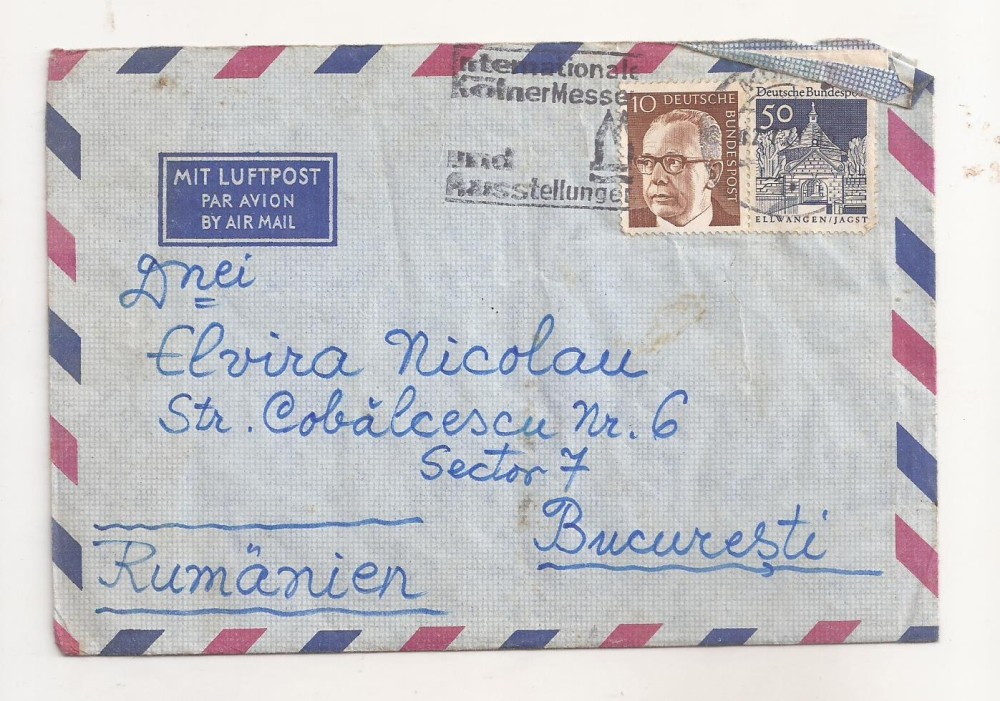 Internationale
KölnerMesse
und
Ausstellungen
10 DEUTSCHE BUNDESPOST
Deutsche Bundespost
50
ELLWANGEN/JAGST
MIT LUFTPOST
PAR AVION
BY AIR MAIL
Dnei
Elvira Nicolau
Str. Cobălcescu Nr. 6
Sector 7
București
Rumänien